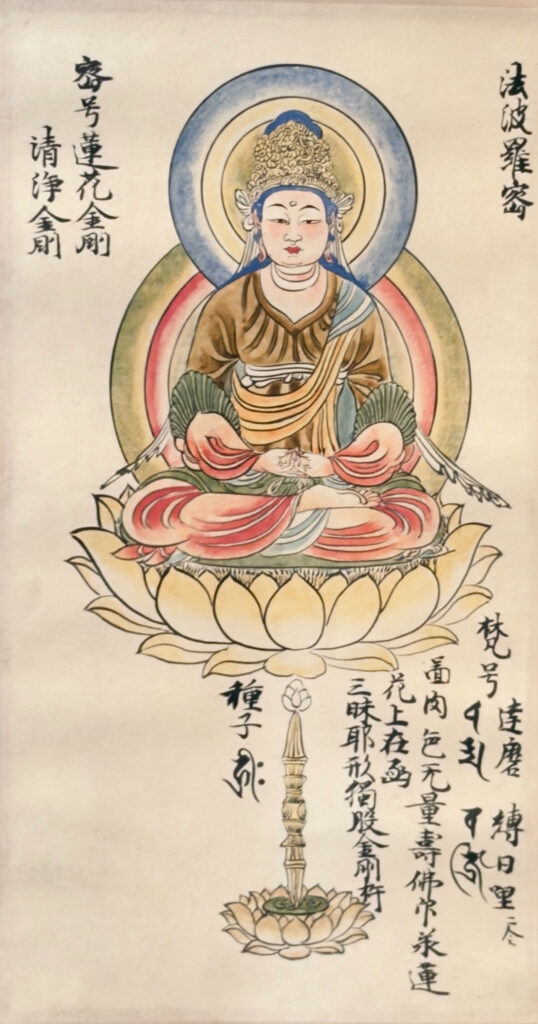 法波羅密
密号蓮花金剛
清浄金剛
梵号達磨 縛日哩 二合
面肉色无量壽佛印承蓮
花上在函
三昧耶形獨股金剛杵
種子